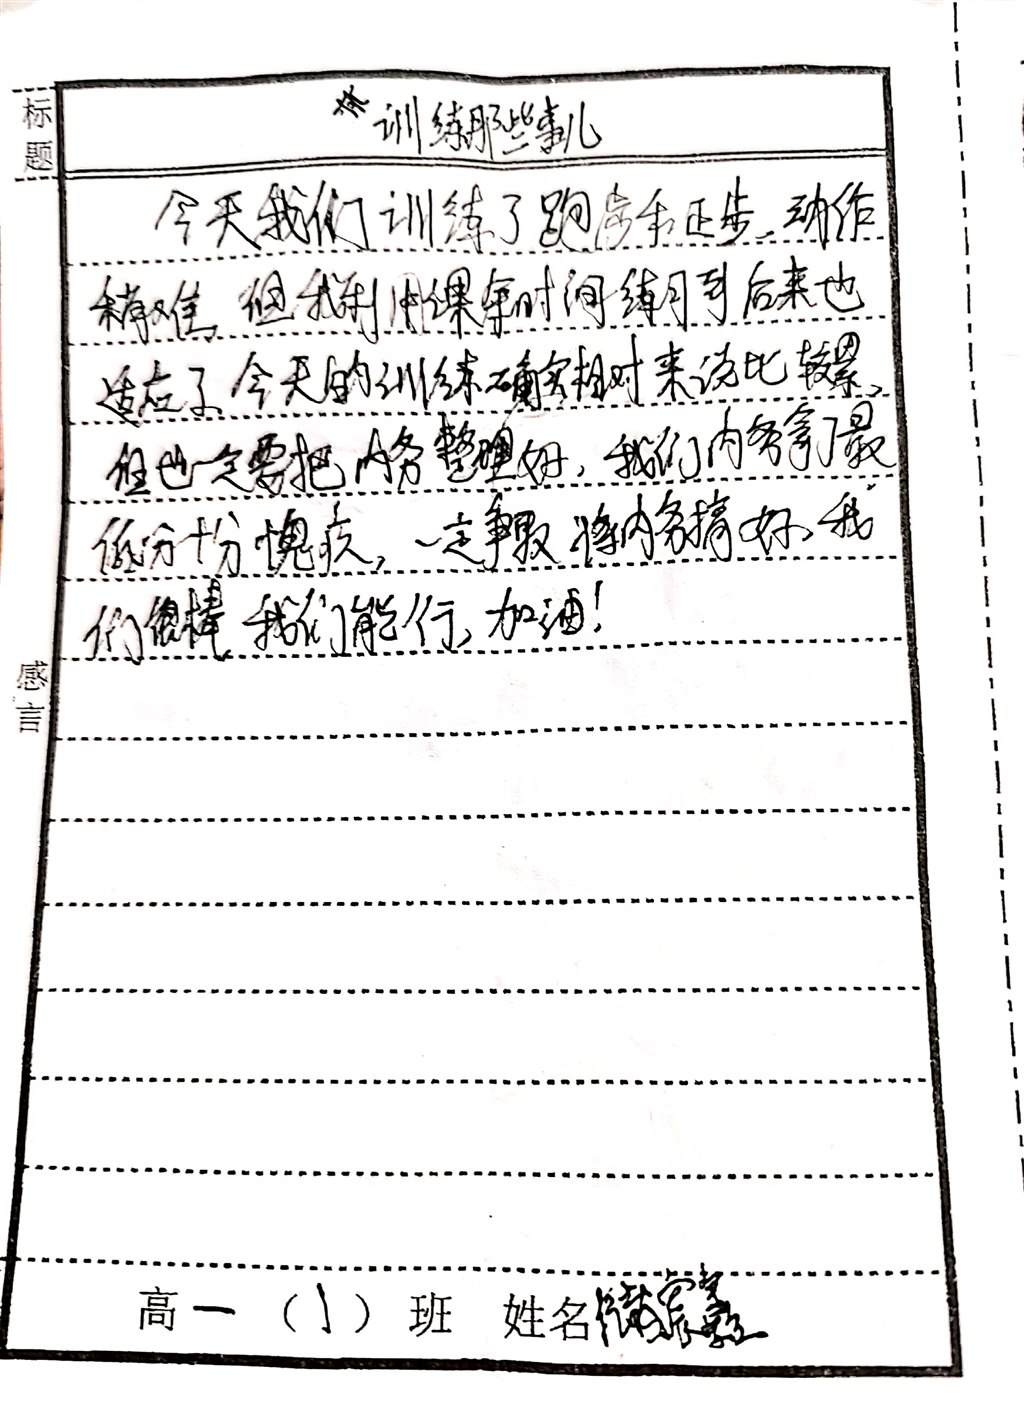 标题
训练那些事儿
今天我们训练了跑步和正步、动作
稍难，但我利用课余时间练习到后来也
适应了，今天的训练确实相对来说比较累，
但也一定要把内务整理好，我们内务拿了最
低分十分愧疚，一定争取将内务搞好、我
们很棒，我们能行，加油！
感言
高一（1）班 姓名